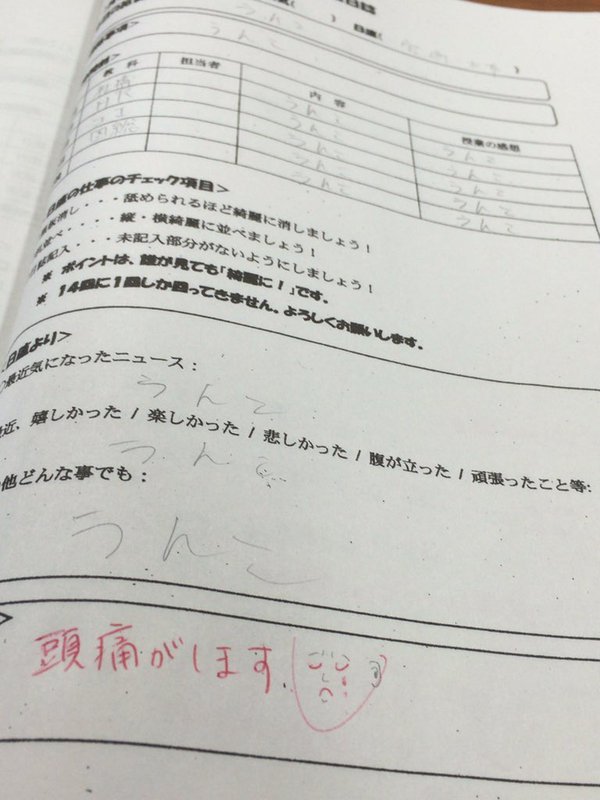 日誌
うんこ ( ) 日直( )
うんこ
教科 担当者 内容 授業の感想
うんこ うんこ
うんこ うんこ
うんこ うんこ
国語 うんこ うんこ
うんこ うんこ
日直の仕事のチェック項目>
板消し・・・舐められるほど綺麗に消しましょう!
並べ・・・縦・横綺麗に並べましょう!
記入・・・未記入部分がないようにしましょう!
※ ポイントは、誰が見ても「綺麗に!」です。
※ 14回に1回しか回ってきません。よろしくお願いします。
日直より>
○最近気になったニュース:
うんこ
最近、嬉しかった / 楽しかった / 悲しかった / 腹が立った / 頑張ったこと等:
うんこ
他どんな事でも:
うんこ
>
頭痛がします